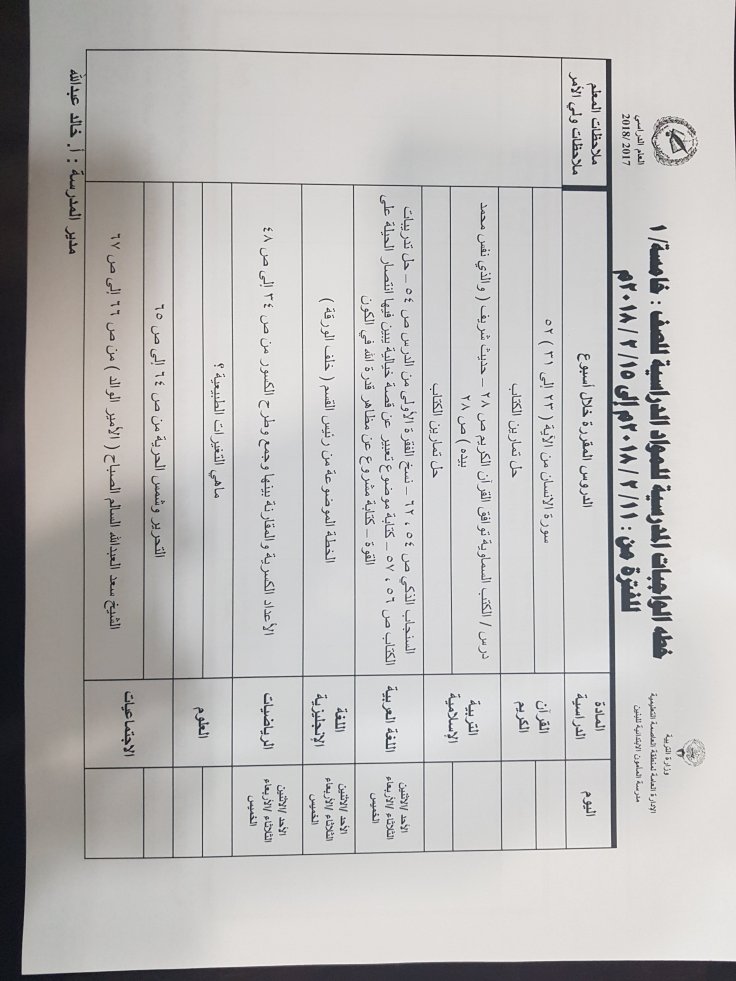 وزارة التربية
الإدارة العامة لمنطقة العاصمة التعليمية
مدرسة المامون الابتدائية للبنين
خطه الواجبات المدرسية للمواد الدراسية للصف : خامسة/ ١
للفترة من : ٢٠١٨/ ٢ / ١١م إلى ٢٠١٨/ ٢ / ١٥م
العام الدراسي
2018/ 2017
اليوم
المادة الدراسية
الدروس المقررة خلال أسبوع
ملاحظات المعلم
ملاحظات ولي الأمر
القرآن الكريم
سورة الانسان من الآية ( ٢٣ الى ٣١ ) ٥٢
حل تمارين الكتاب
التربية الإسلامية
درس / الكتب السماوية توافق القرآن الكريم ص ٢٨ – حديث شريف ( والذي نفس محمد
بيده ) ص ٢٨
حل تمارين الكتاب
الأحد /الاثنين
الثلاثاء /الأربعاء
الخميس
اللغة العربية
السنجاب الذكي ص ٥٤ ، ٦٢ – نسخ الفقرة الأولى من الدرس ص ٥٤ – حل تدريبات
الكتاب ص ٥٦ ، ٥٧ – كتابة موضوع تعبير عن قصة خيالية يبين فيها انتصار الحيلة على
القوة – كتابة مشروع عن مظاهر قدرة الله في الكون
الأحد /الاثنين
الثلاثاء /الأربعاء
الخميس
اللغة الإنجليزية
الخطة الموضوعة من رئيس القسم ( خلف الورقة )
الأحد /الاثنين
الثلاثاء /الأربعاء
الخميس
الرياضيات
الأعداد الكسرية والمقارنة بينها وجمع وطرح الكسور من ص ٣٤ إلى ص ٤٨
العلوم
ماهي التغيرات الطبيعية ؟
الاجتماعيات
التحرير وشمس الحرية من ص ٦٤ إلى ص ٦٥
الشيخ سعد العبدالله السالم الصباح ( الأمير الوالد ) من ص ٦٦ إلى ص ٦٧
مدير المدرسة : أ. خالد عبدالله